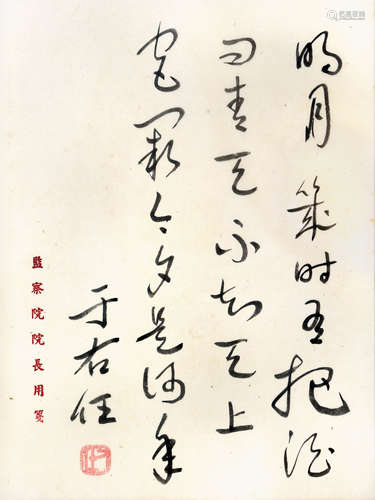 明月几时有把酒
问青天不知天上
宫阙今夕是何年
于右任
監察院院長用箋